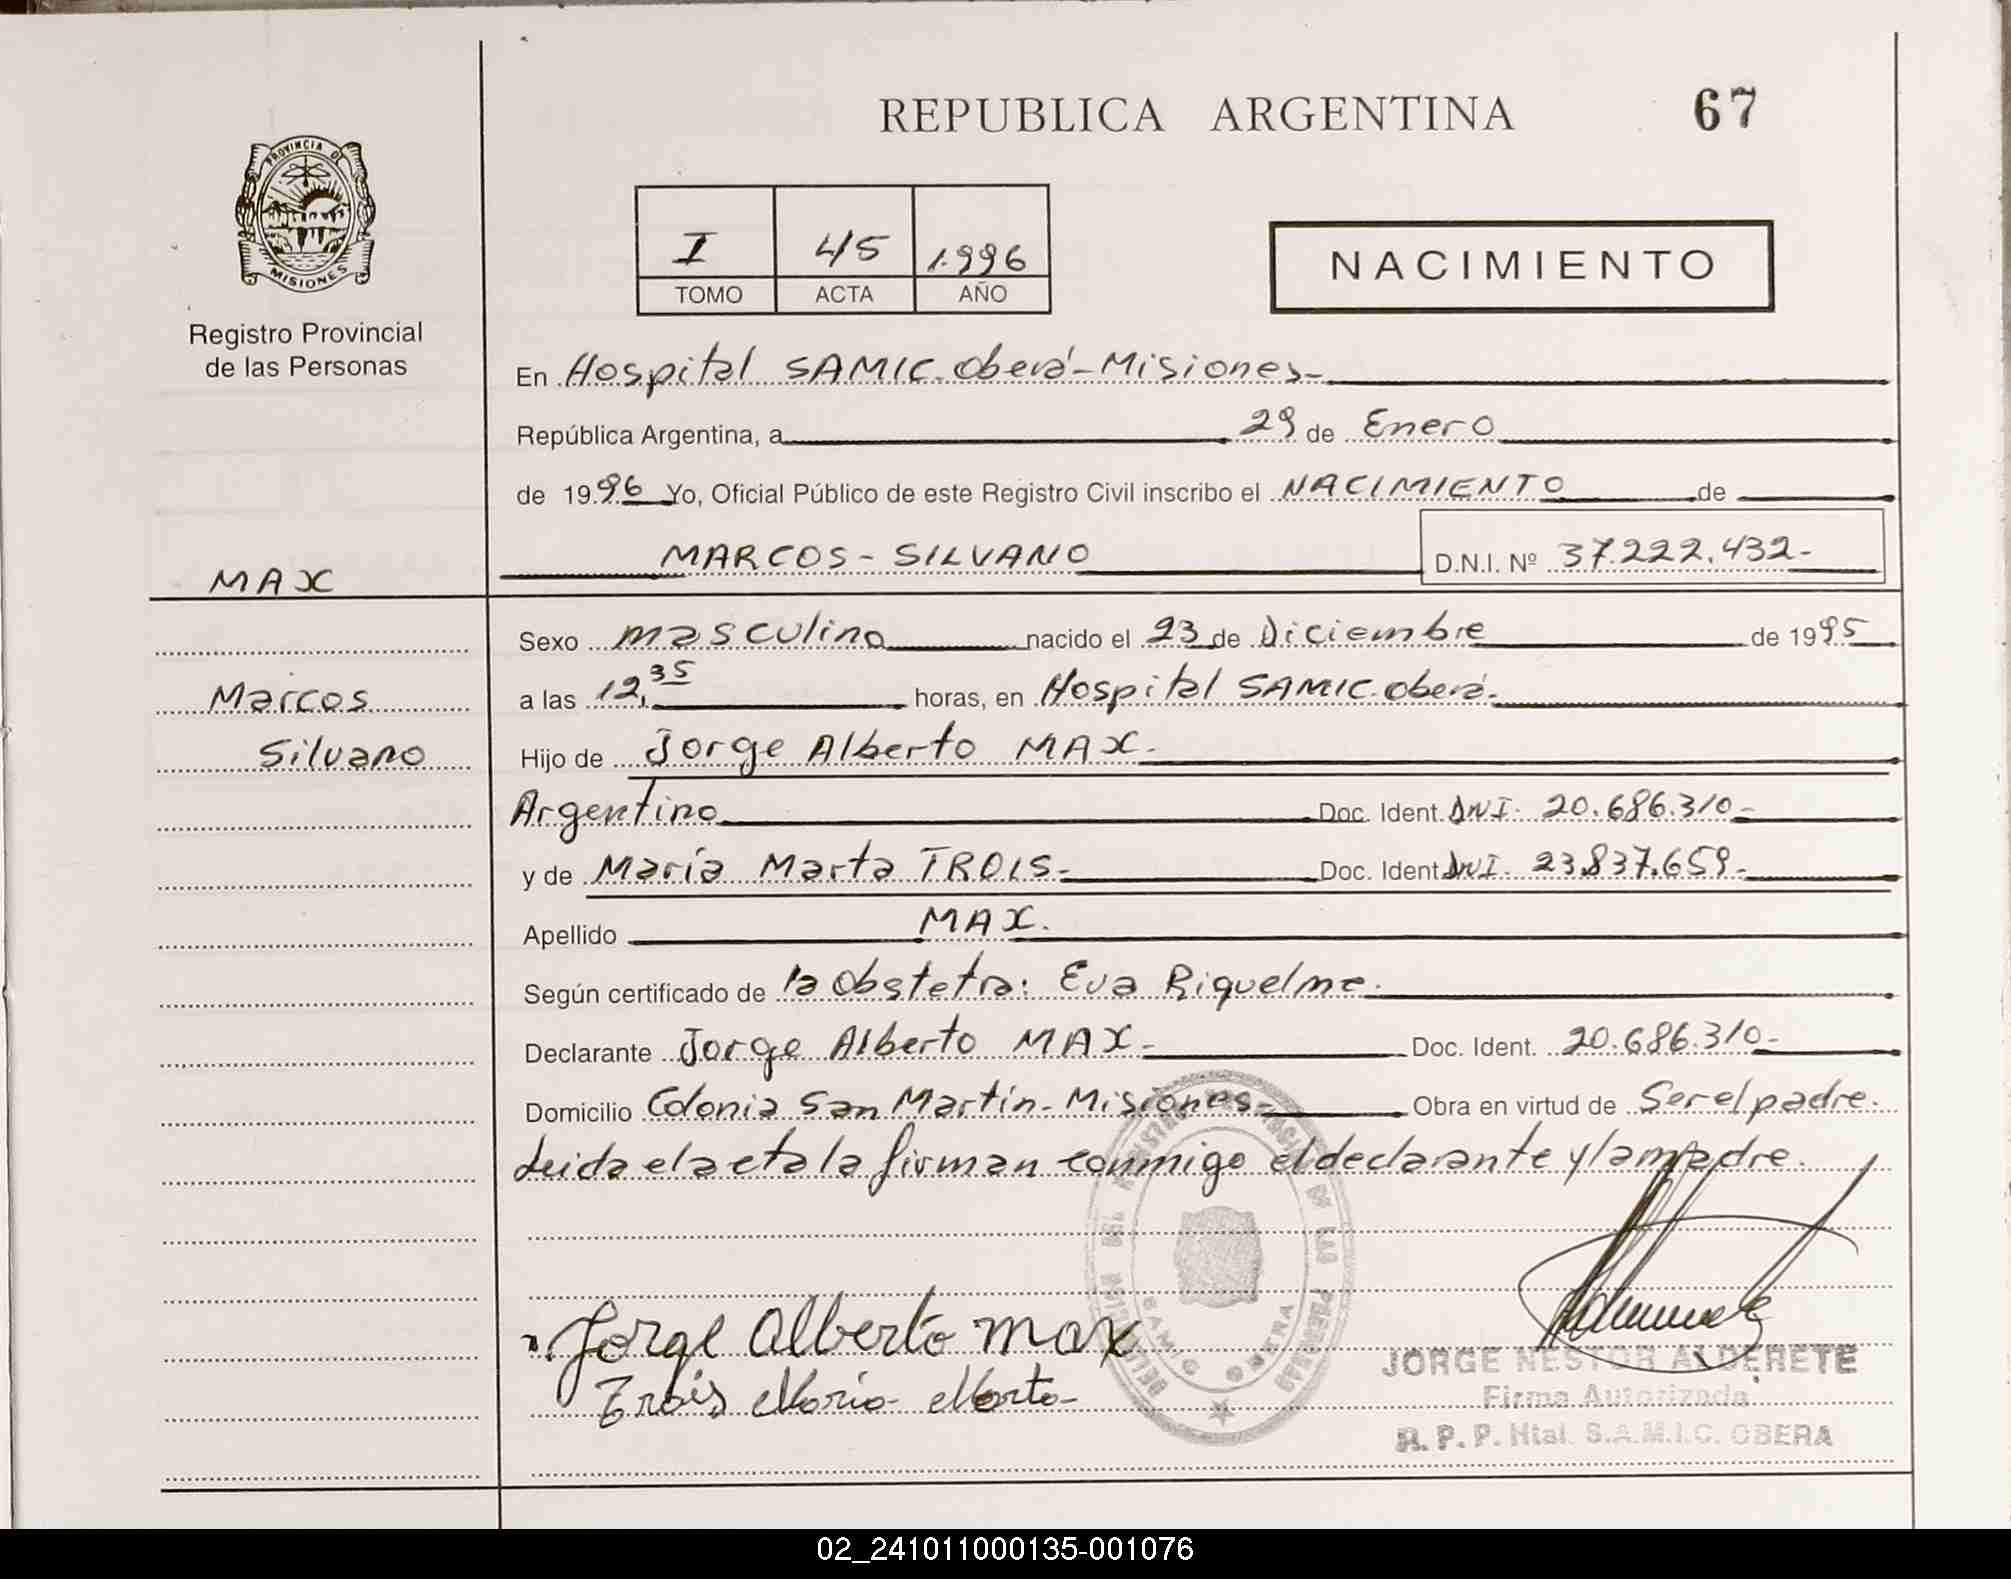 REPUBLICA ARGENTINA 67
PROVINCIA DE
MISIONES
Registro Provincial
de las Personas
I 45 1.996
TOMO ACTA AÑO
NACIMIENTO
En Hospital SAMIC. Oberá - Misiones -
República Argentina, a 29 de Enero
de 1996 Yo, Oficial Público de este Registro Civil inscribo el NACIMIENTO de
MAX
MARCOS - SILVANO D.N.I. Nº 37.222.432-
Sexo masculino nacido el 23 de Diciembre de 1995
Marcos
a las 12,35 horas, en Hospital SAMIC. Oberá.
Silvano
Hijo de Jorge Alberto MAX.
Argentino Doc. Ident. DNI. 20.686.310-
y de María Marta TROIS. Doc. Ident. DNI. 23.837.659.
Apellido MAX.
Según certificado de la Obstetra: Eva Riquelme.
Declarante Jorge Alberto MAX. Doc. Ident. 20.686.310-
Domicilio Colonia San Martín - Misiones - Obra en virtud de Ser el padre.
Leida el acta la firman conmigo el declarante y la madre.
Jorge Alberto Max
Trois Maria Marta
JORGE NESTOR ALDERETE
Firma Autorizada
R. P. P. Htal. S.A.M.I.C. OBERA
02_241011000135-001076